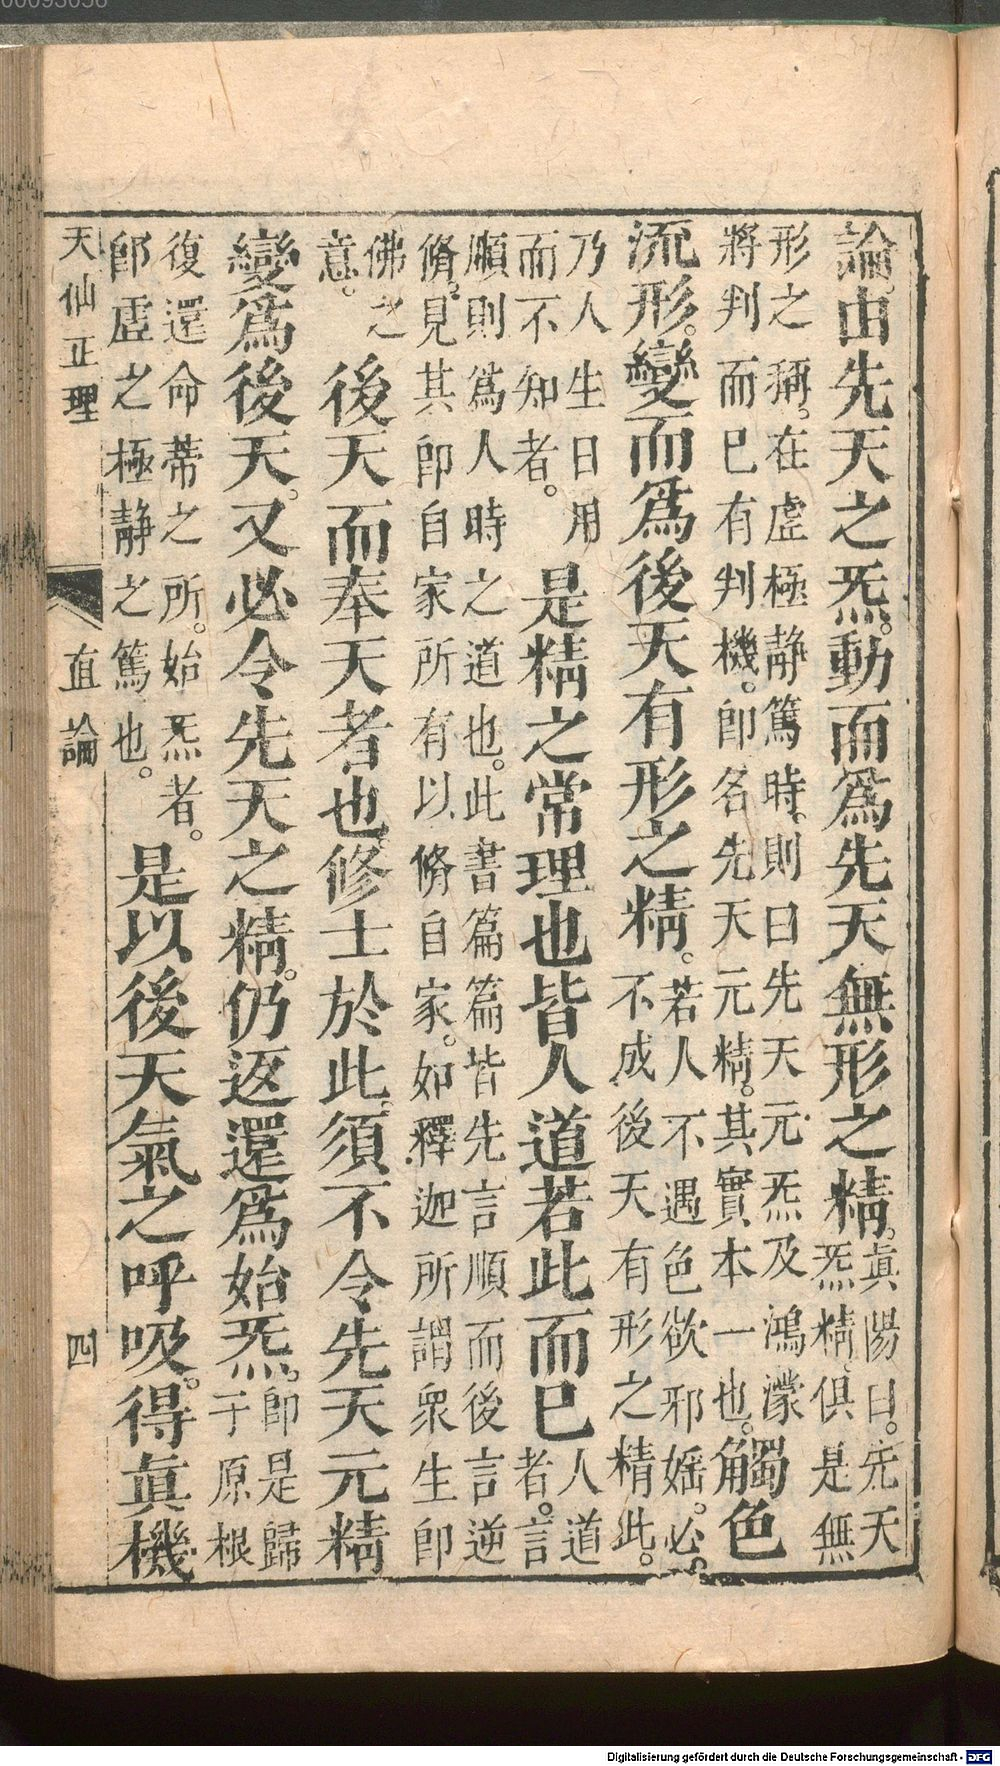 00093056
論。由先天之炁。動而爲先天無形之精。眞陽曰。先天
炁精俱是無
形之稱。在虛極靜篤時。則曰先天元炁及鴻濛
將判而巳有判機。卽名先天元精。其實本一也。觸色
流形。變而爲後天有形之精。若人不遇色欲邪婬。必
不成後天有形之精此。
乃人生日用
而不知者。是精之常理也皆人道若此而巳人道
者。言
順則爲人時之道也。此書篇篇皆先言順而後言逆
脩。見其卽自家所有以脩自家。如釋迦所謂眾生卽
佛之
意。後天而奉天者也。修士於此。須不令先天元精
變爲後天。又必令先天之精。仍返還爲始炁。卽是歸
于原根
復還命蒂之所。始炁者。
卽虛之極靜之篤也。是以後天氣之呼吸。得眞機
天仙正理 直論 四
Digitalisierung gefördert durch die Deutsche Forschungsgemeinschaft - DFG